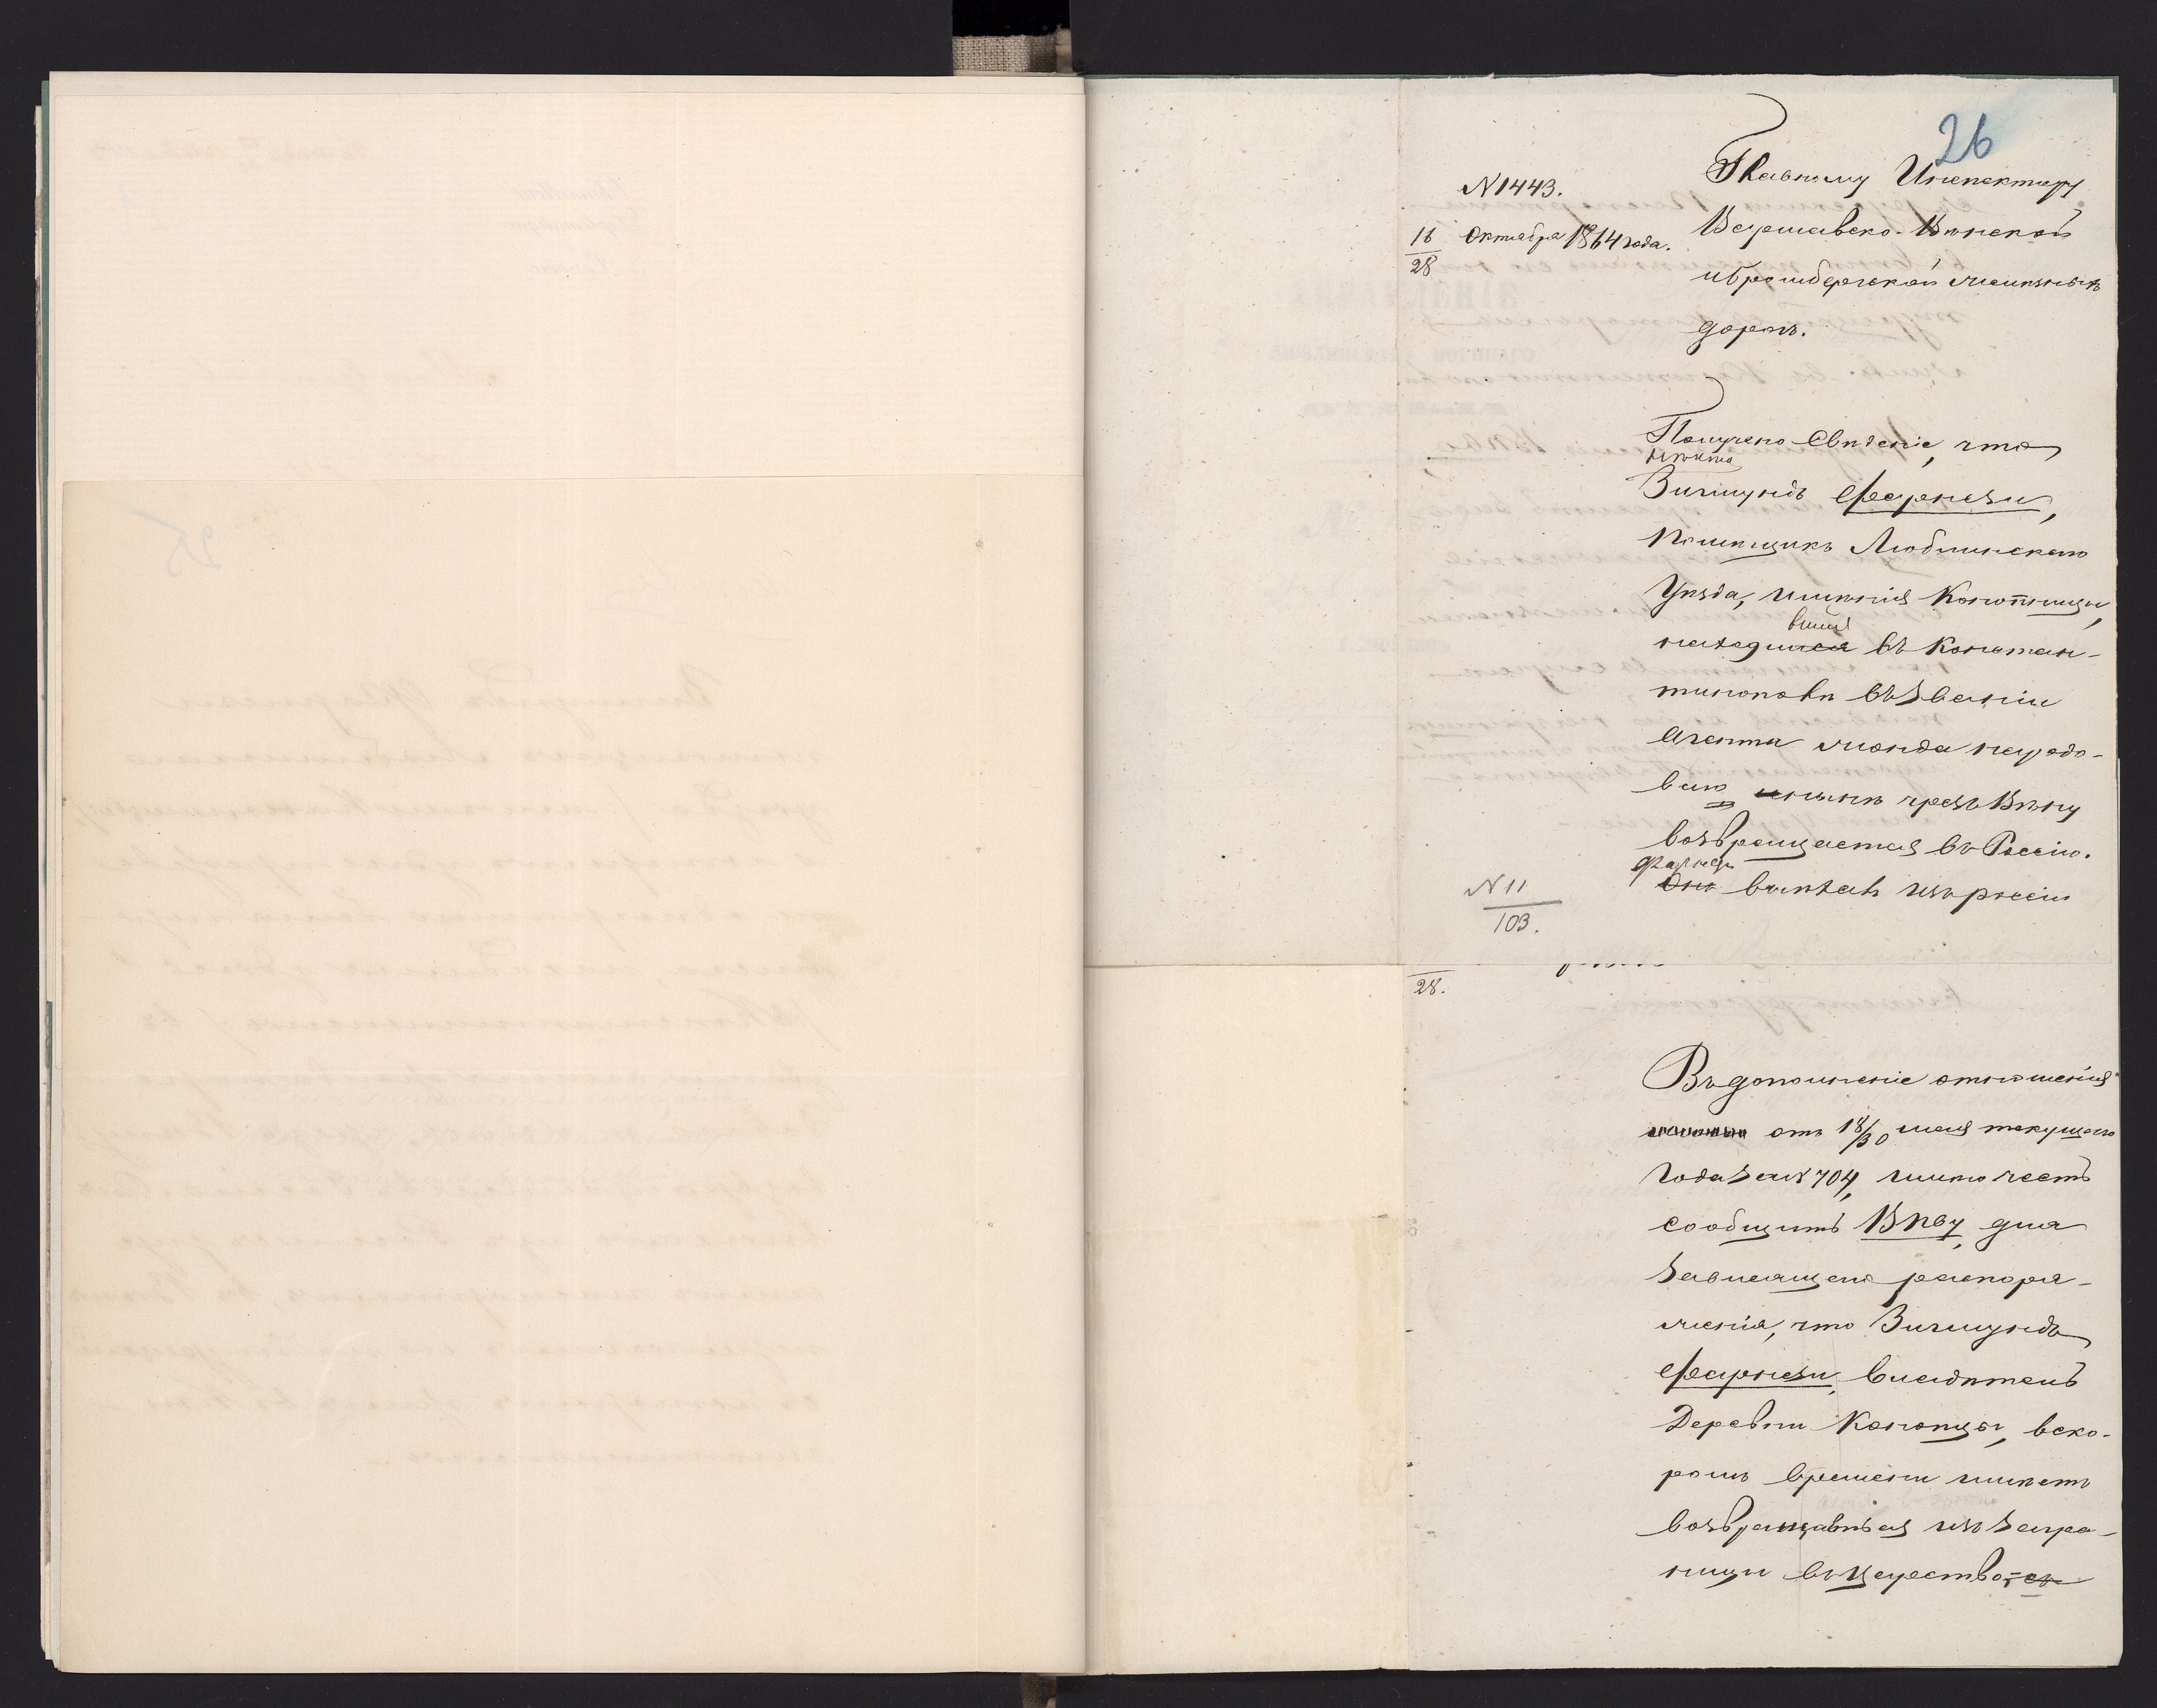 26
N 1443.
16/28 Октября 1864 года.
Главному Инспектору
Варшавско-Вѣнской
и Бромбергской желѣзныхъ
дорогъ.
Получено Свѣденіе, что
нѣкто
Зигмундъ Фарнези,
Помѣщикъ Люблинскаго
Уѣзда, имѣнія Конопницы,
вшійся
находящійся въ Констан-
тинополѣ въ званіи
Агента жонда народо-
ваго нынѣ чрезъ Вѣну
возвращается въ Россію.
Фарнези
Онъ выѣхалъ изъ россіи
N 11/103.
28.
Въ дополненіе отношенія
отъ 18/30 мая текущаго
Года за N 704, имѣю честь
сообщить ВПбу, для
зависящаго распоря-
женія, что Зигмундъ
Фарнези, владѣтель
Деревни Конопцы, вско-
ромъ времени имѣетъ
возвращаться изъ загра-
ницы въ Царство,